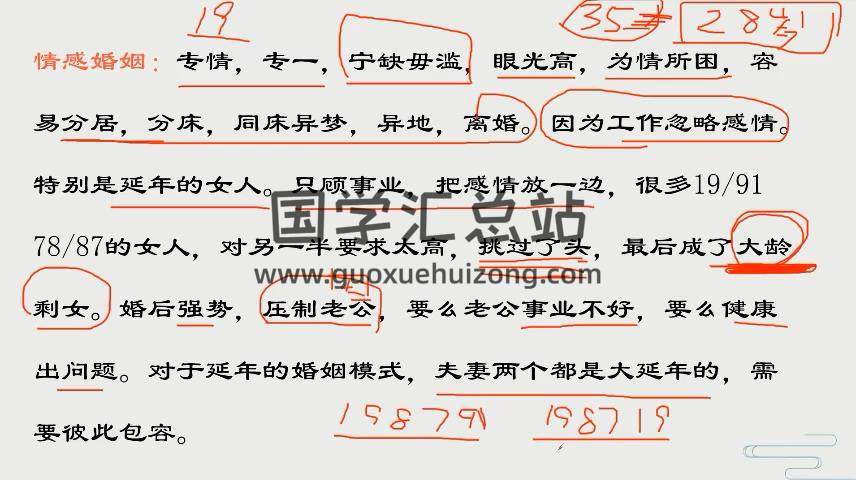 19
35
284
情感婚姻：专情，专一，宁缺毋滥，眼光高，为情所困，容
易分居，分床，同床异梦，异地，离婚。因为工作忽略感情。
特别是延年的女人。只顾事业，把感情放一边，很多19/91
国学汇总站
78/87的女人，对另一半要求太高，挑过了头，最后成了大龄
www.guoxuehuizong.com
剩女。婚后强势，压制老公，要么老公事业不好，要么健康
出问题。对于延年的婚姻模式，夫妻两个都是大延年的，需
198791 198719
要彼此包容。